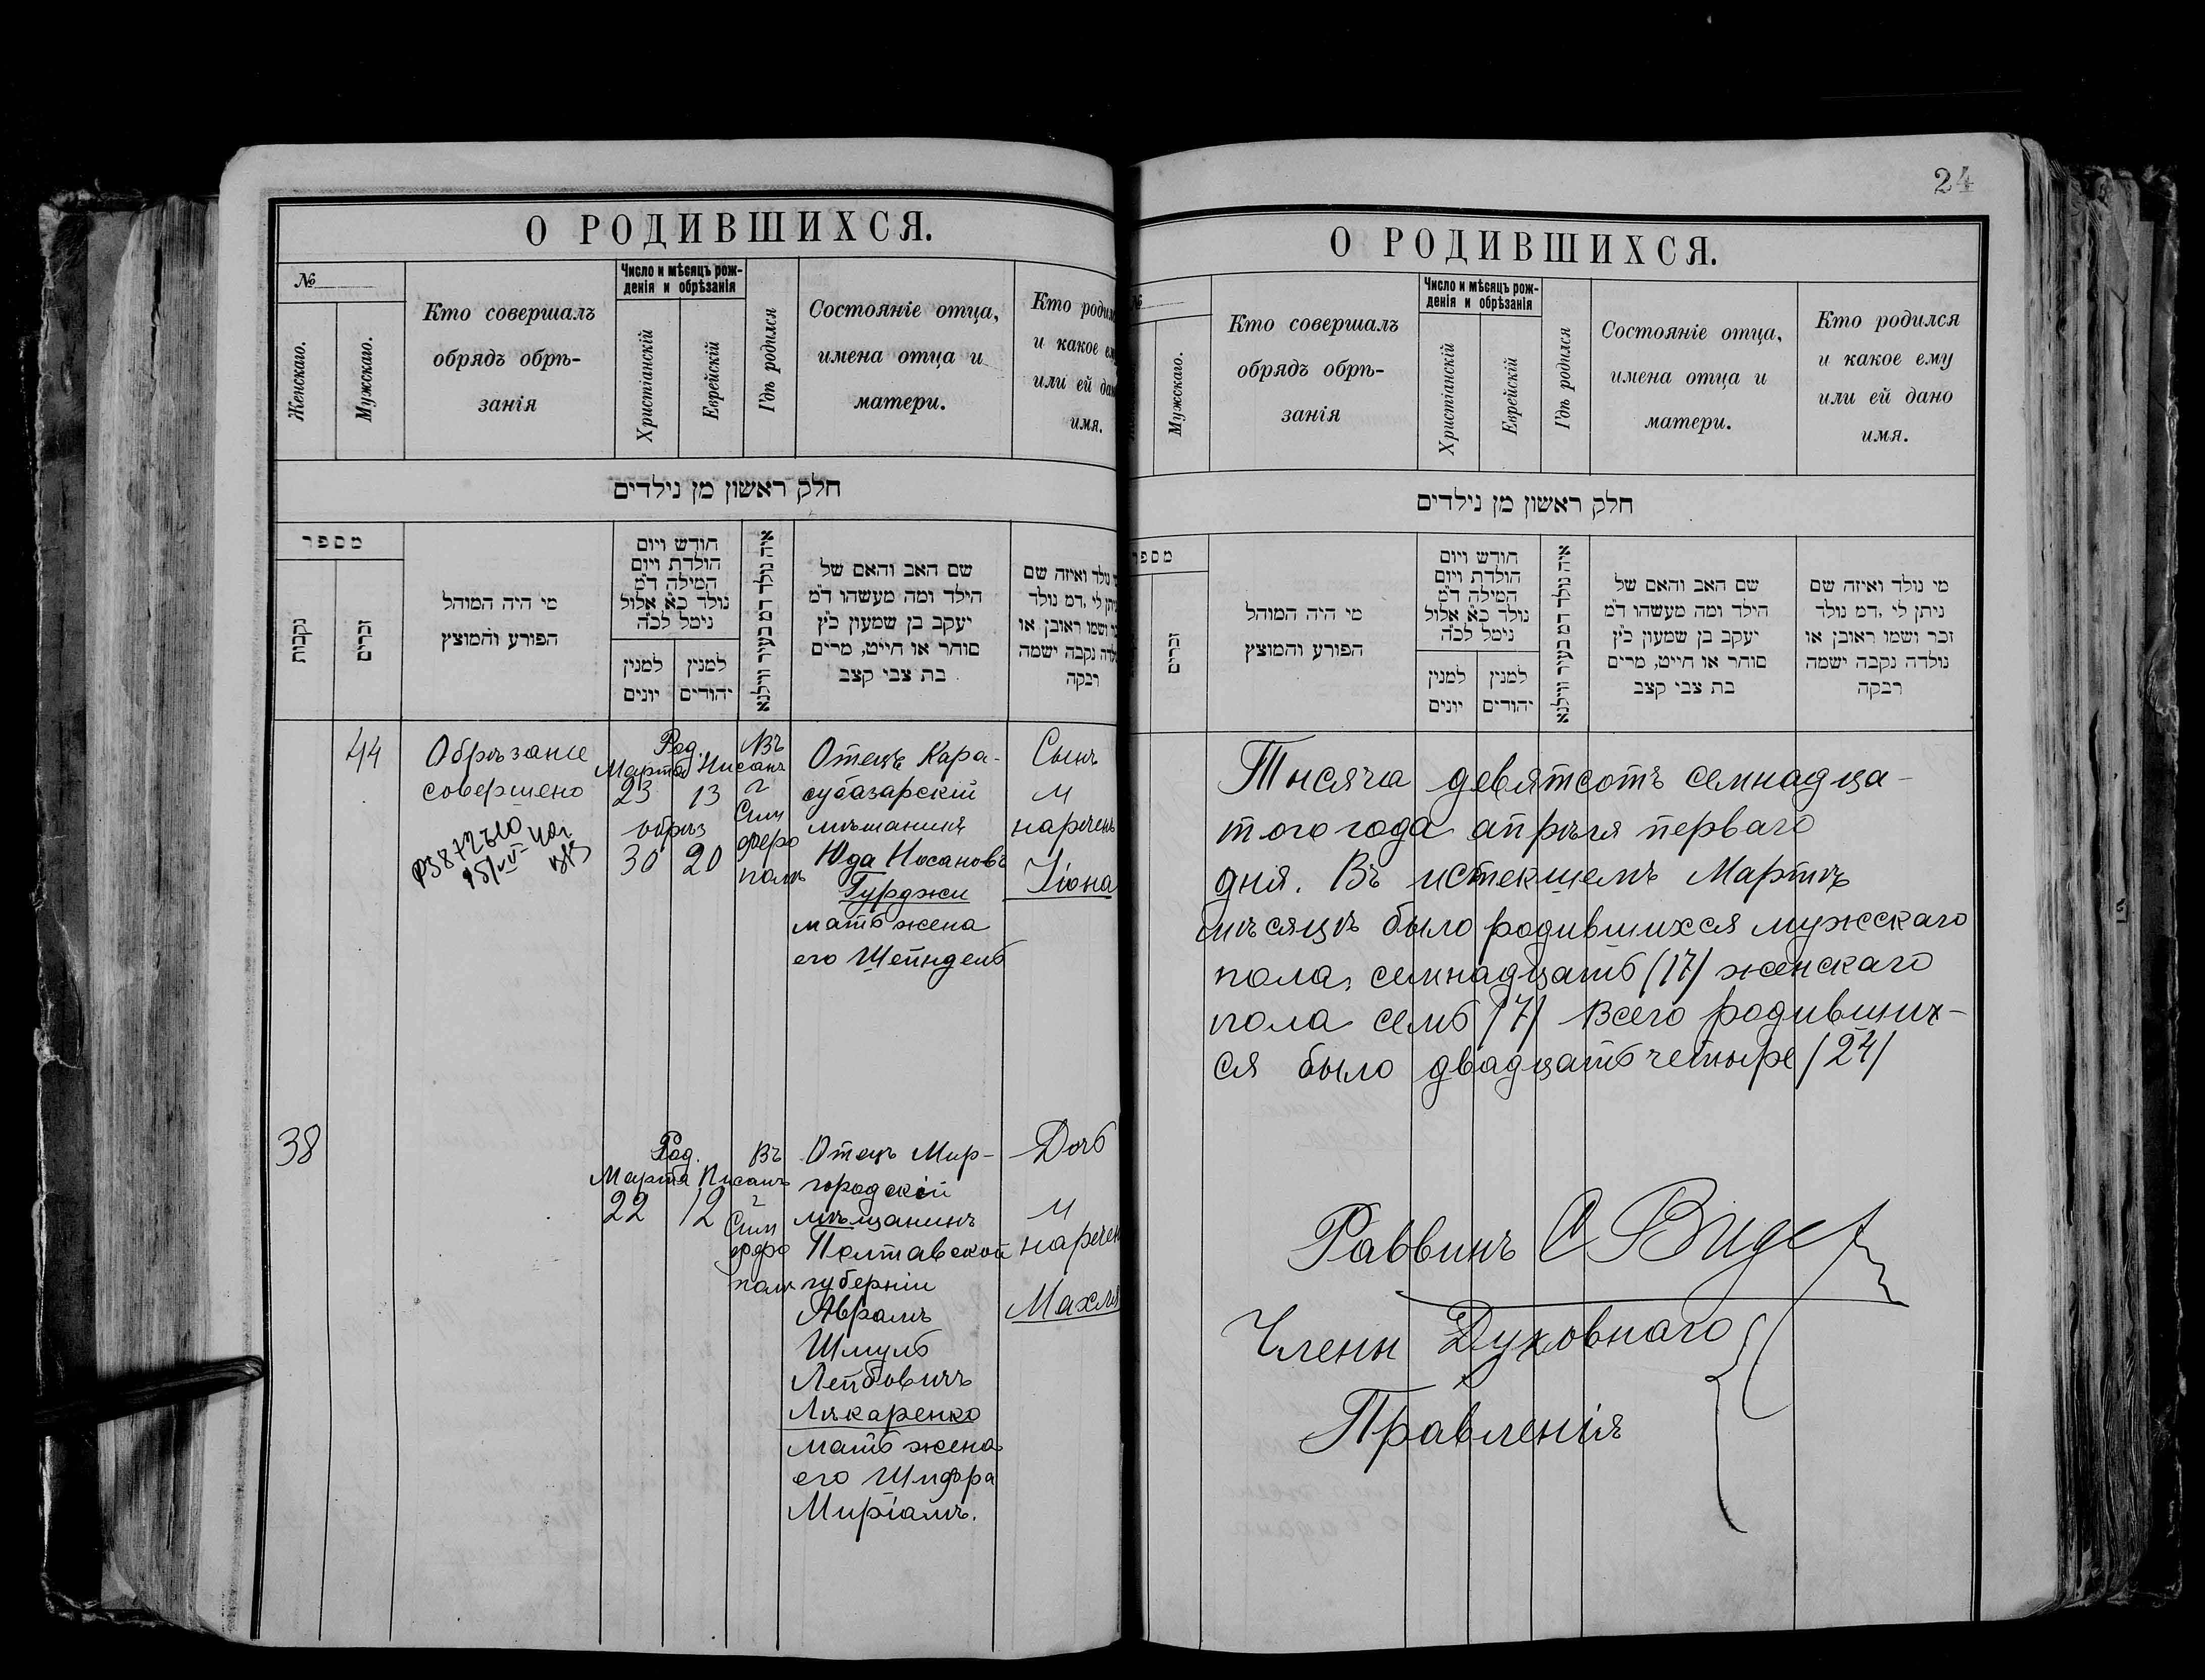 О РОДИВШИХСЯ.
№
Женскаго.
Мужскаго.
Кто совершалъ
обрядъ обрѣ-
занія
Число и мѣсяцъ рож-
денія и обрѣзанія
Христіанскій
Еврейскій
Гдѣ родился
Состояніе отца,
имена отца и
матери.
Кто родил
и какое ем
или ей дан
имя.
חלק ראשון מן נילדים
מספר
נקבות
זכרים
מי היה המוהל
הפורע והמוצץ
חודש ויום
הולדת ויום
המילה ד״מ
נולד כ״א אלול
נימל לכ״ה
למנין
יונים
למנין
יהודים
איה נולד דמ בעיר ווילנא
שם האב והאם של
הילד ומה מעשהו ד״מ
יעקב בן שמעון כ״ץ
סוחר או חייט, מרים
בת צבי קצב
נולד ואיזה שם
יתן לי, דמ נולד
ושמו ראובן או
נקבה ישמה
רבקה
44
Обрѣзаніе
совершено
Род.
Марта Нисанъ
23 13
обрѣз
30 20
Въ
г
Сим
феро
полѣ
Отецъ Кара-
субазарскій
мѣщанинъ
Юда Носановъ
Гурджи
мать жена
его Шейндель
Сынъ
и
нареченъ
Іона
38
Род.
Марта Нисанъ
22 12
Въ
г
Сим
феро
полѣ
Отецъ Мир-
городскій
мѣщанинъ
Полтавской
губерніи
Аврамъ
Шмуль
Лейбовичъ
Макаренко
мать жена
его Шифра
Миріамъ.
Дочь
и
наречен
Махля
24
О РОДИВШИХСЯ.
№
Мужскаго.
Кто совершалъ
обрядъ обрѣ-
занія
Число и мѣсяцъ рож-
денія и обрѣзанія
Христіанскій
Еврейскій
Гдѣ родился
Состояніе отца,
имена отца и
матери.
Кто родился
и какое ему
или ей дано
имя.
חלק ראשון מן נילדים
מספר
זכרים
מי היה המוהל
הפורע והמוצץ
חודש ויום
הולדת ויום
המילה ד״מ
נולד כ״א אלול
נימל לכ״ה
למנין
יונים
למנין
יהודים
איה נולד דמ בעיר ווילנא
שם האב והאם של
הילד ומה מעשהו ד״מ
יעקב בן שמעון כ״ץ
סוחר או חייט, מרים
בת צבי קצב
מי נולד ואיזה שם
ניתן לי, דמ נולד
זכר ושמו ראובן או
נולדה נקבה ישמה
רבקה
Тысяча девятсотъ семнадца-
того года апрѣля перваго
дня. Въ истекшемъ Мартѣ
мѣсяцѣ было родившихся мужскаго
пола, семнадцать /17/ женскаго
пола семь /7/ Всего родивших-
ся было двадцать четыре /24/
Раввинъ
Члены Духовнаго
Правленія